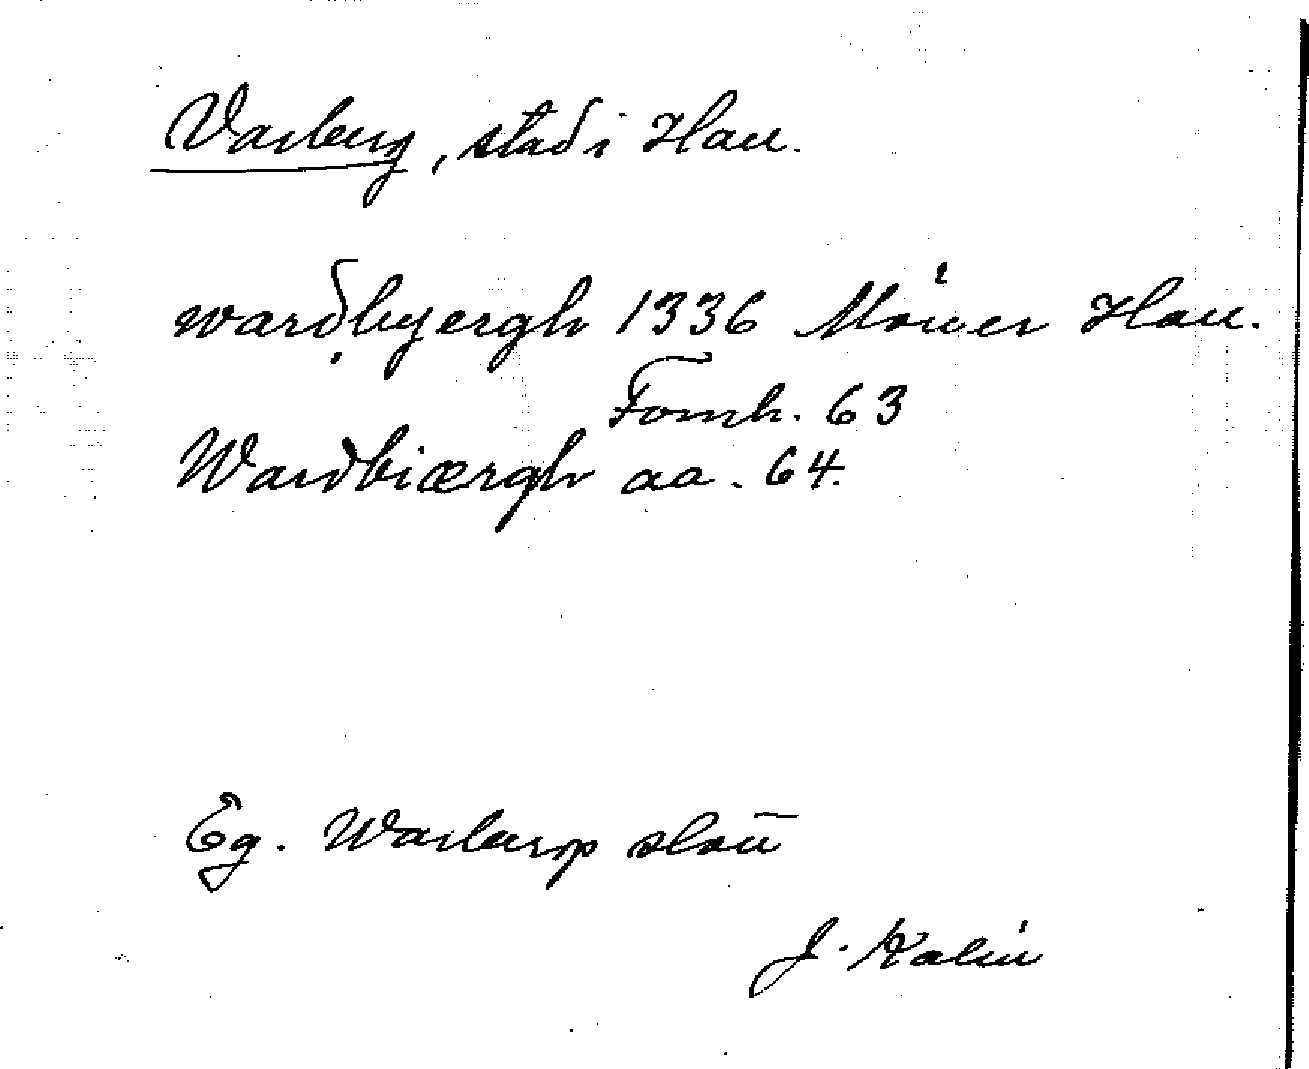 Varberg, stad i Hall.
wardbyergh 1336 Hall.
Fornh. 63
Wardbiærgh aa. 64.
Eg. Warberg slott
J. Kalén